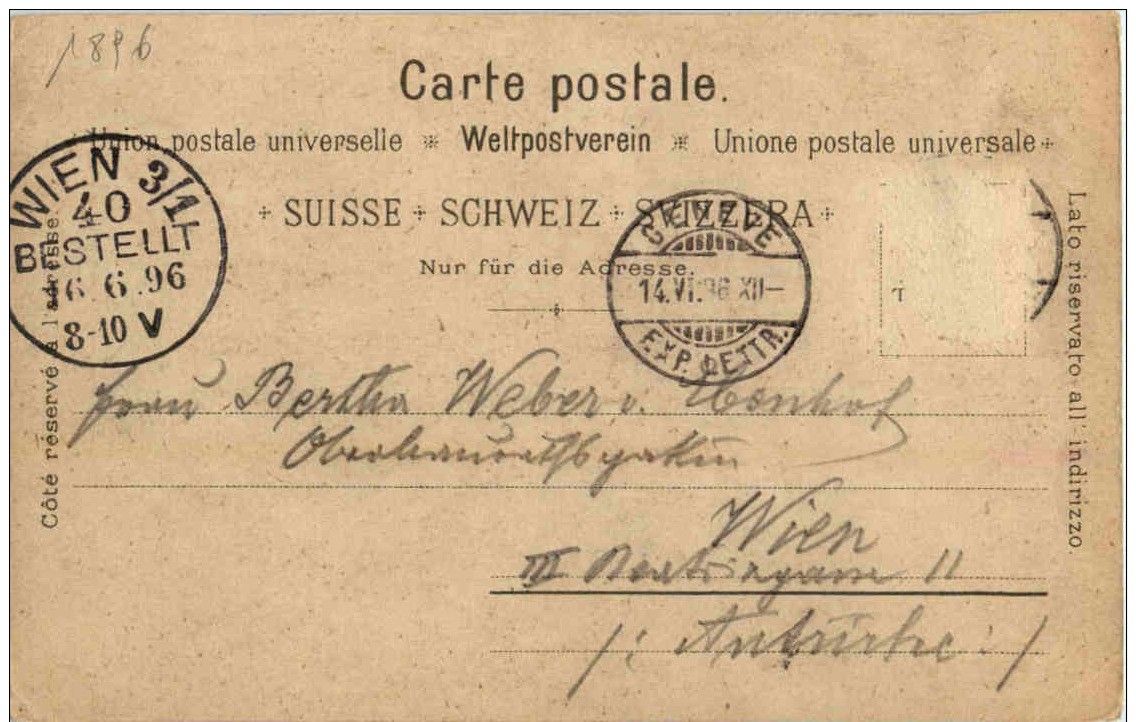 1896
Carte postale.
Union postale universelle * Weltpostverein * Unione postale universale +
+ SUISSE + SCHWEIZ + SVIZZERA +
Nur für die Adresse.
Côté réservé à l'adresse.
Lato riservato all' indirizzo.
WIEN 3/1
40
BESTELLT
16.6.96
8-10 V
GENÈVE
14.VI.96 XII-
EXP. LETTR.
Frau Bertha Weber v.
Wien
III 11
/: Autriche :/